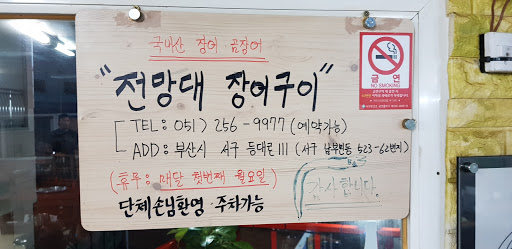 국내산 장어·곰장어
"전망대 장어구이"
TEL: 051) 256-9977 (예약가능)
ADD: 부산시 서구 등대로 111 (서구 남부민동 523-62번지)
(휴무: 매달 첫번째 월요일)
감사합니다.
단체손님환영·주차가능
NO SMOKING
금연